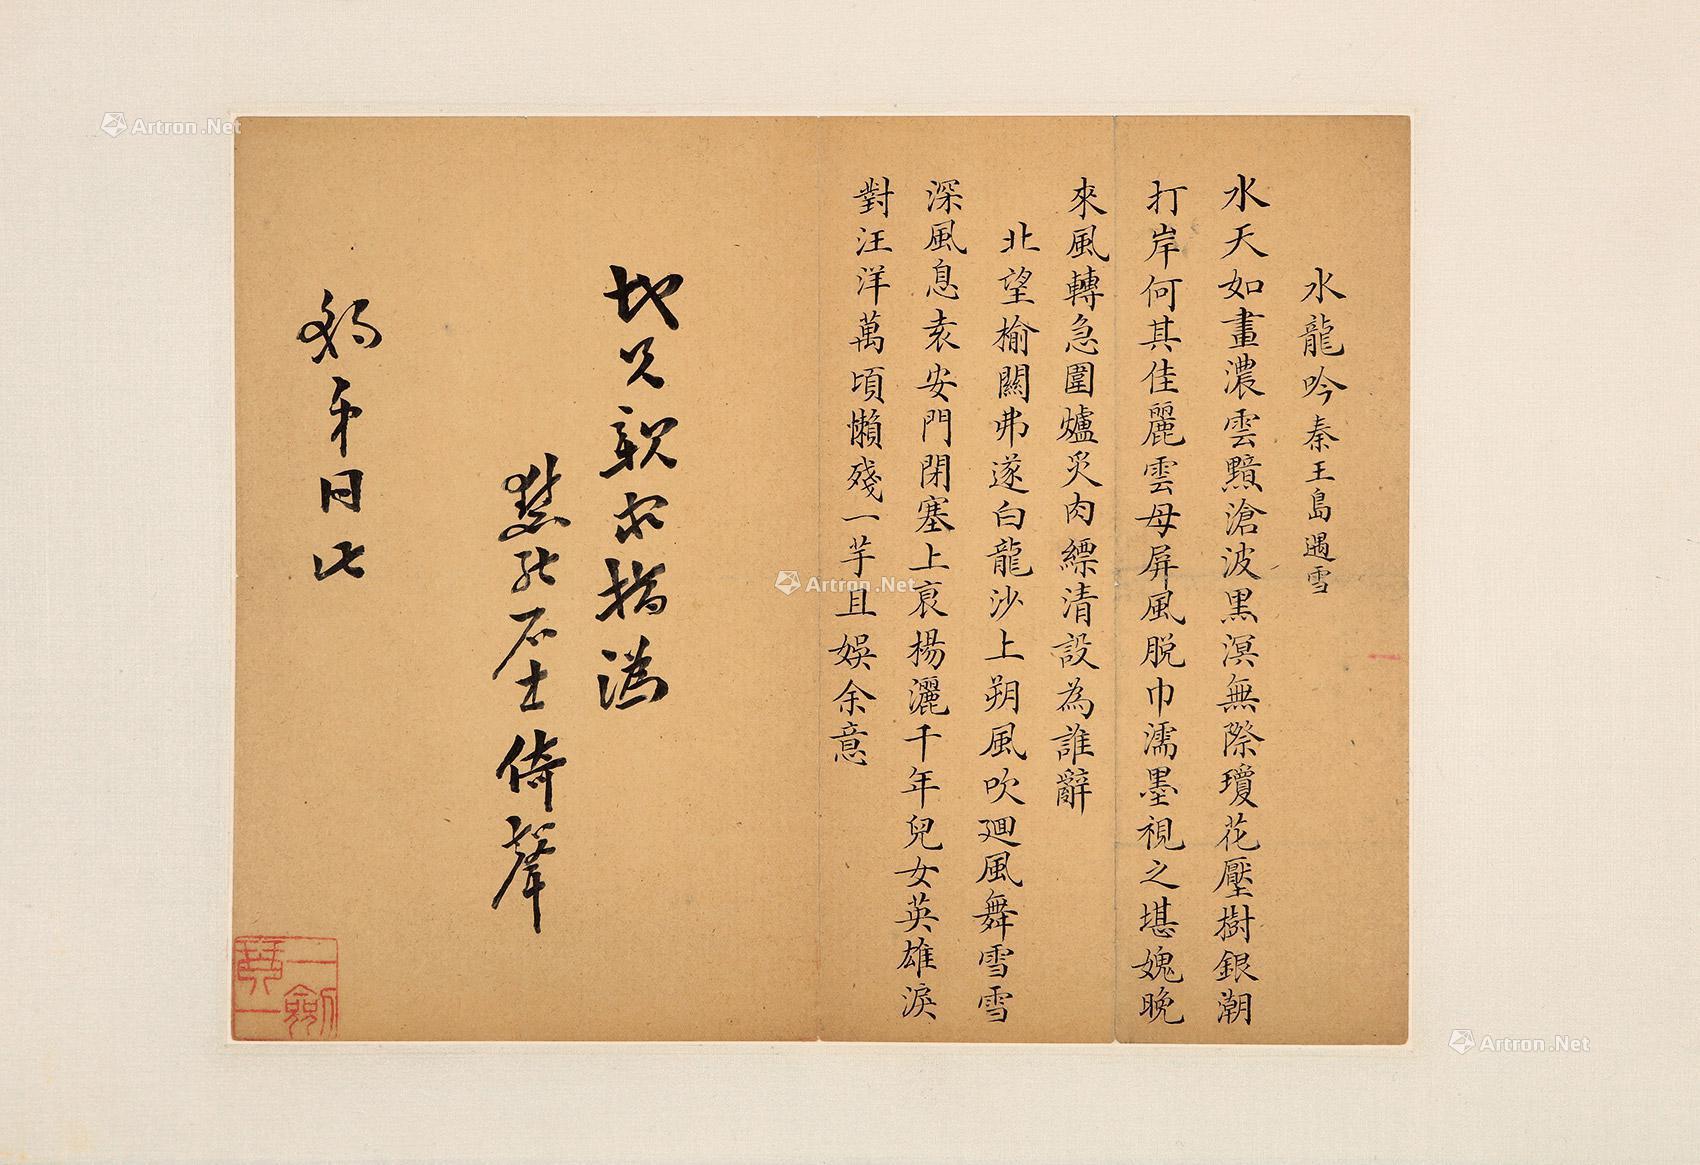 水龍吟 秦王島遇雪
水天如畫濃雲黯滄波黑溟無際瓊花壓樹銀潮
打岸何其佳麗雲母屏風脱巾濡墨視之堪媿晚
來風轉急圍爐炙肉縹清設為誰辭
北望榆關弗遂白龍沙上朔風吹迴風舞雪雪
深風息袁安門閉塞上哀楊灑千年兒女英雄淚
對汪洋萬頃懶殘一芋且娛余意
兄親家指譌
居士倚聲
弟日
一劍
一琴
Artron.Net
Artron.Net
Artron.Net